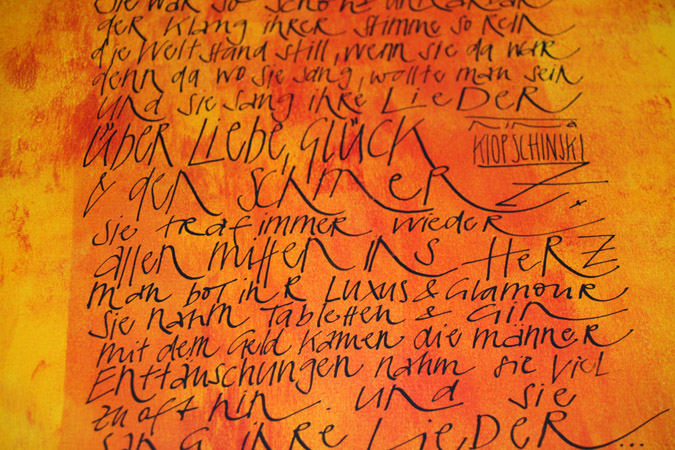 Sie war so schön &
der Klang ihrer Stimme so rein
die Welt stand still, wenn sie da war
denn da wo sie sang, wollte man sein
und sie sang ihre LieDER
ÜBER Liebe, GLÜCK
KLOPSCHINSKI
& den SCHMERZ.
sie traf immer wieder
allen mitten ins HeRZ
man bot ihR Luxus & Glamour
sie nahm Tabletten & Gin
mit dem Geld kamen die männer
Enttäuschungen nahm sie viel
zu oft hin. und sie
sang ihre LieDER...